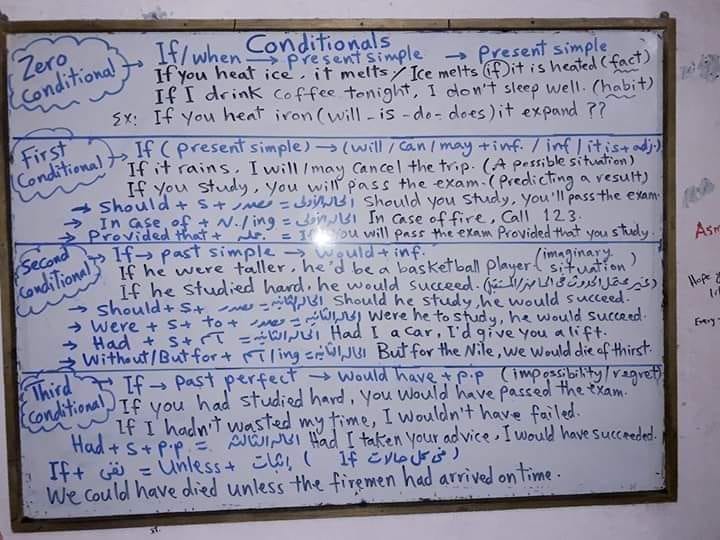 Conditionals
Zero Conditional → If/when → present simple → present simple
If you heat ice, it melts / Ice melts (if) it is heated (fact)
If I drink coffee tonight, I don't sleep well. (habit)
Ex: If you heat iron (will - is - do - does) it expand ??
First Conditional → If (present simple) → (will / can / may + inf. / inf / it is + adj.)
If it rains, I will / may cancel the trip. (A possible situation)
If you study, you will pass the exam. (Predicting a result)
→ Should + S + مصدر = الحالة الأولى Should you study, you'll pass the exam
→ In case of + N. / ing = الحالة الأولى In case of fire, Call 123.
→ Provided that + جملة = If You will pass the exam Provided that you study.
Second Conditional → If → past simple → would + inf.
If he were taller, he'd be a basketball player. (imaginary situation)
If he studied hard, he would succeed.
→ Should + S + مصدر = الحالة الثانية Should he study, he would succeed.
→ Were + S + to + مصدر = الحالة الثانية Were he to study, he would succeed.
→ Had + S + اسم = الحالة الثانية Had I a car, I'd give you a lift.
→ Without / But for + اسم / ing = الحالة الثانية But for the Nile, we would die of thirst.
Third Conditional → If → past perfect → would have + p.p (impossibility / regret)
If you had studied hard, you would have passed the exam.
If I hadn't wasted my time, I wouldn't have failed.
Had + S + p.p. = الحالة الثالثة Had I taken your advice, I would have succeeded.
If + نفى = Unless + إثبات ( فى كل حالات If )
We could have died unless the firemen had arrived on time.